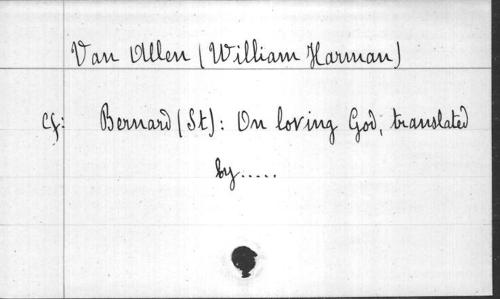 Van Allen (William Harman)
cf: Bernard (St): On loving God; translated
by.....